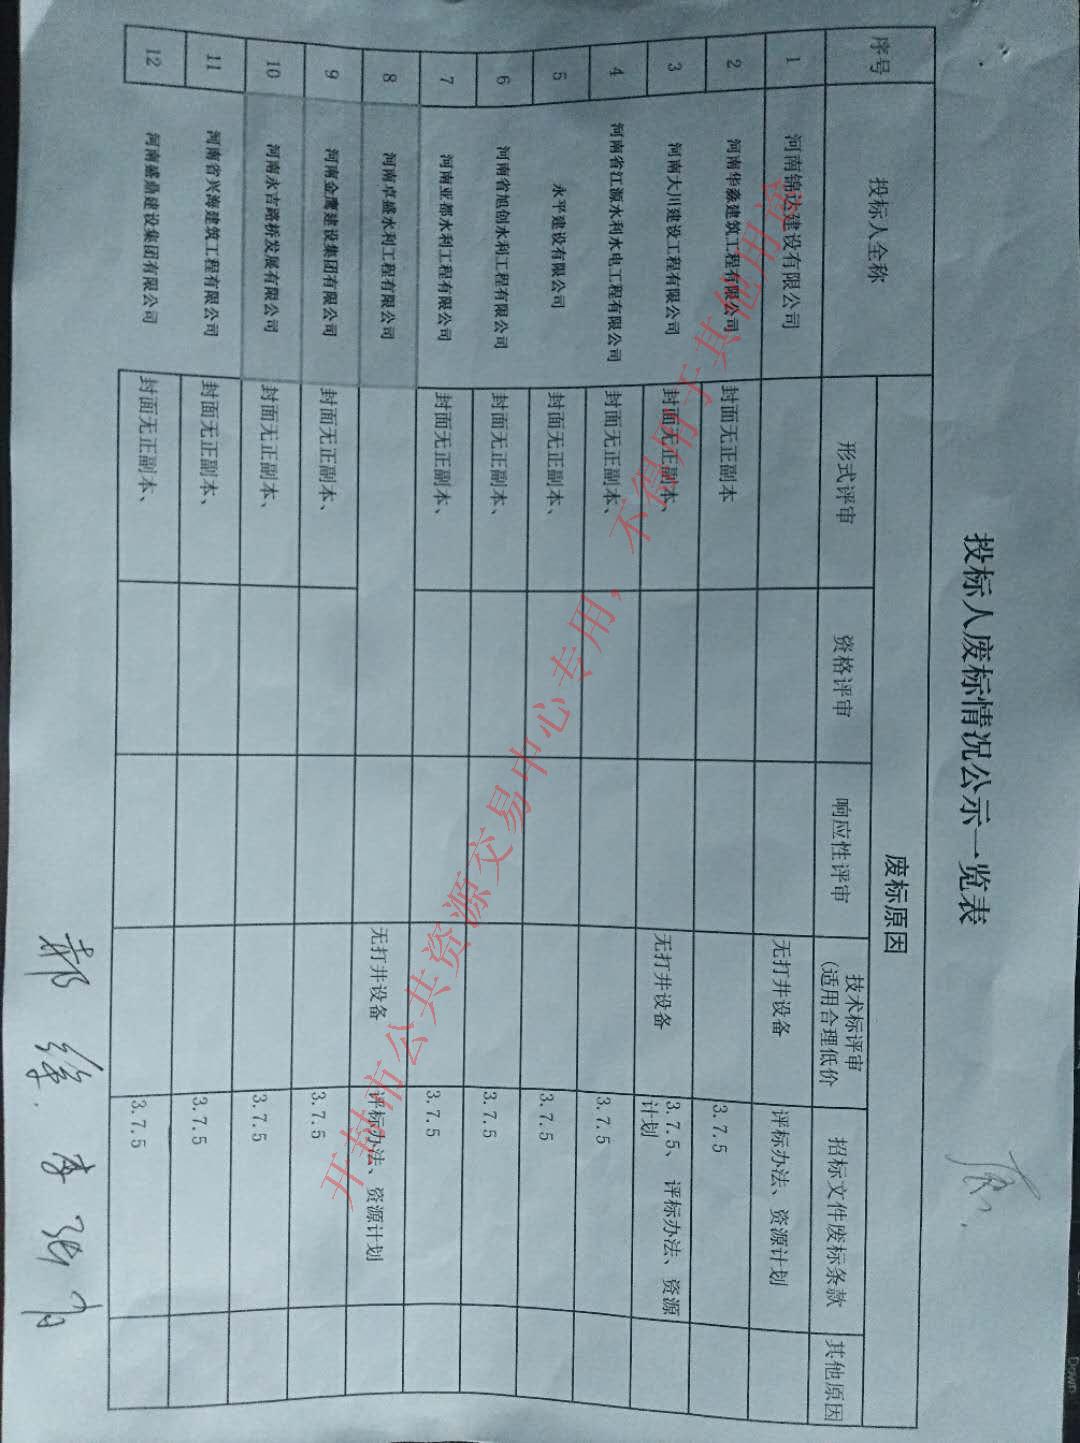 投标人废标情况公示一览表
序号 投标人全称 废标原因
形式评审 资格评审 响应性评审 技术标评审 招标文件废标条款 其他原因
(适用合理低价
1 河南锦达建设有限公司 无打井设备 评标办法、资源计划
2 河南华淼建筑工程有限公司 封面无正副本 3.7.5
3 河南大川建设工程有限公司 封面无正副本、 无打井设备 3.7.5、 评标办法、资源
计划
4 河南省江源水利水电工程有限公司 封面无正副本、 3.7.5
5 永平建设有限公司 封面无正副本、 3.7.5
6 河南省旭创水利工程有限公司 封面无正副本、 3.7.5
7 河南亚都水利工程有限公司 封面无正副本、 3.7.5
8 河南卓盛水利工程有限公司 无打井设备 评标办法、资源计划
9 河南金鹰建设集团有限公司 封面无正副本、 3.7.5
10 河南永吉路桥发展有限公司 封面无正副本、 3.7.5
11 河南省兴海建筑工程有限公司 封面无正副本、 3.7.5
12 河南盛鼎建设集团有限公司 封面无正副本、 3.7.5
开封市公共资源交易中心专用，不得用于其他用途